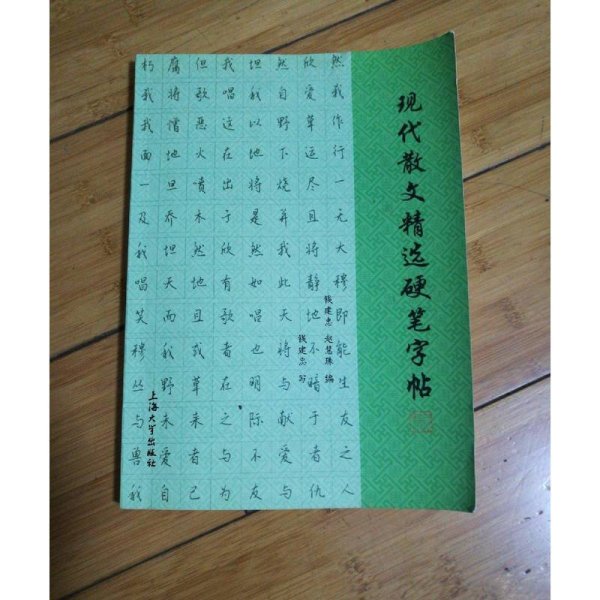 现代散文精选硬笔字帖
钱建忠 赵慧珠 编
钱建忠 写
上海大学出版社
朽腐但我坦然欣然
我将歌唱我自爱我
我憎恶这以野草作
面地火在地下运行
一旦喷出将烧尽一
及乔木于是并且无
我坦然欣然我将大
唱天地有如此静穆
笑而且歌唱天地即
穆我或者也将不能
丛野草在明与暗生
与未来之际献于友
兽爱者与不爱者之
我自己为友与仇人